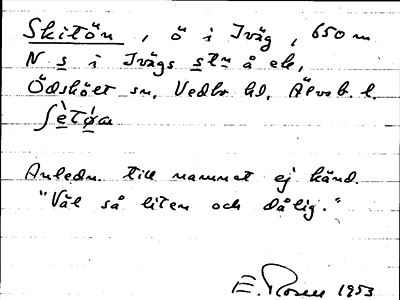 Skitön, ö i Iväg, 650 m
N s i Ivägs stn å ek,
Ödskölt sn. Vedbo hd. Älvsb. l.
ʃètø̀a
Anledn. till namnet ej känd.
"Väl så liten och dålig."
E. Rosen 1953